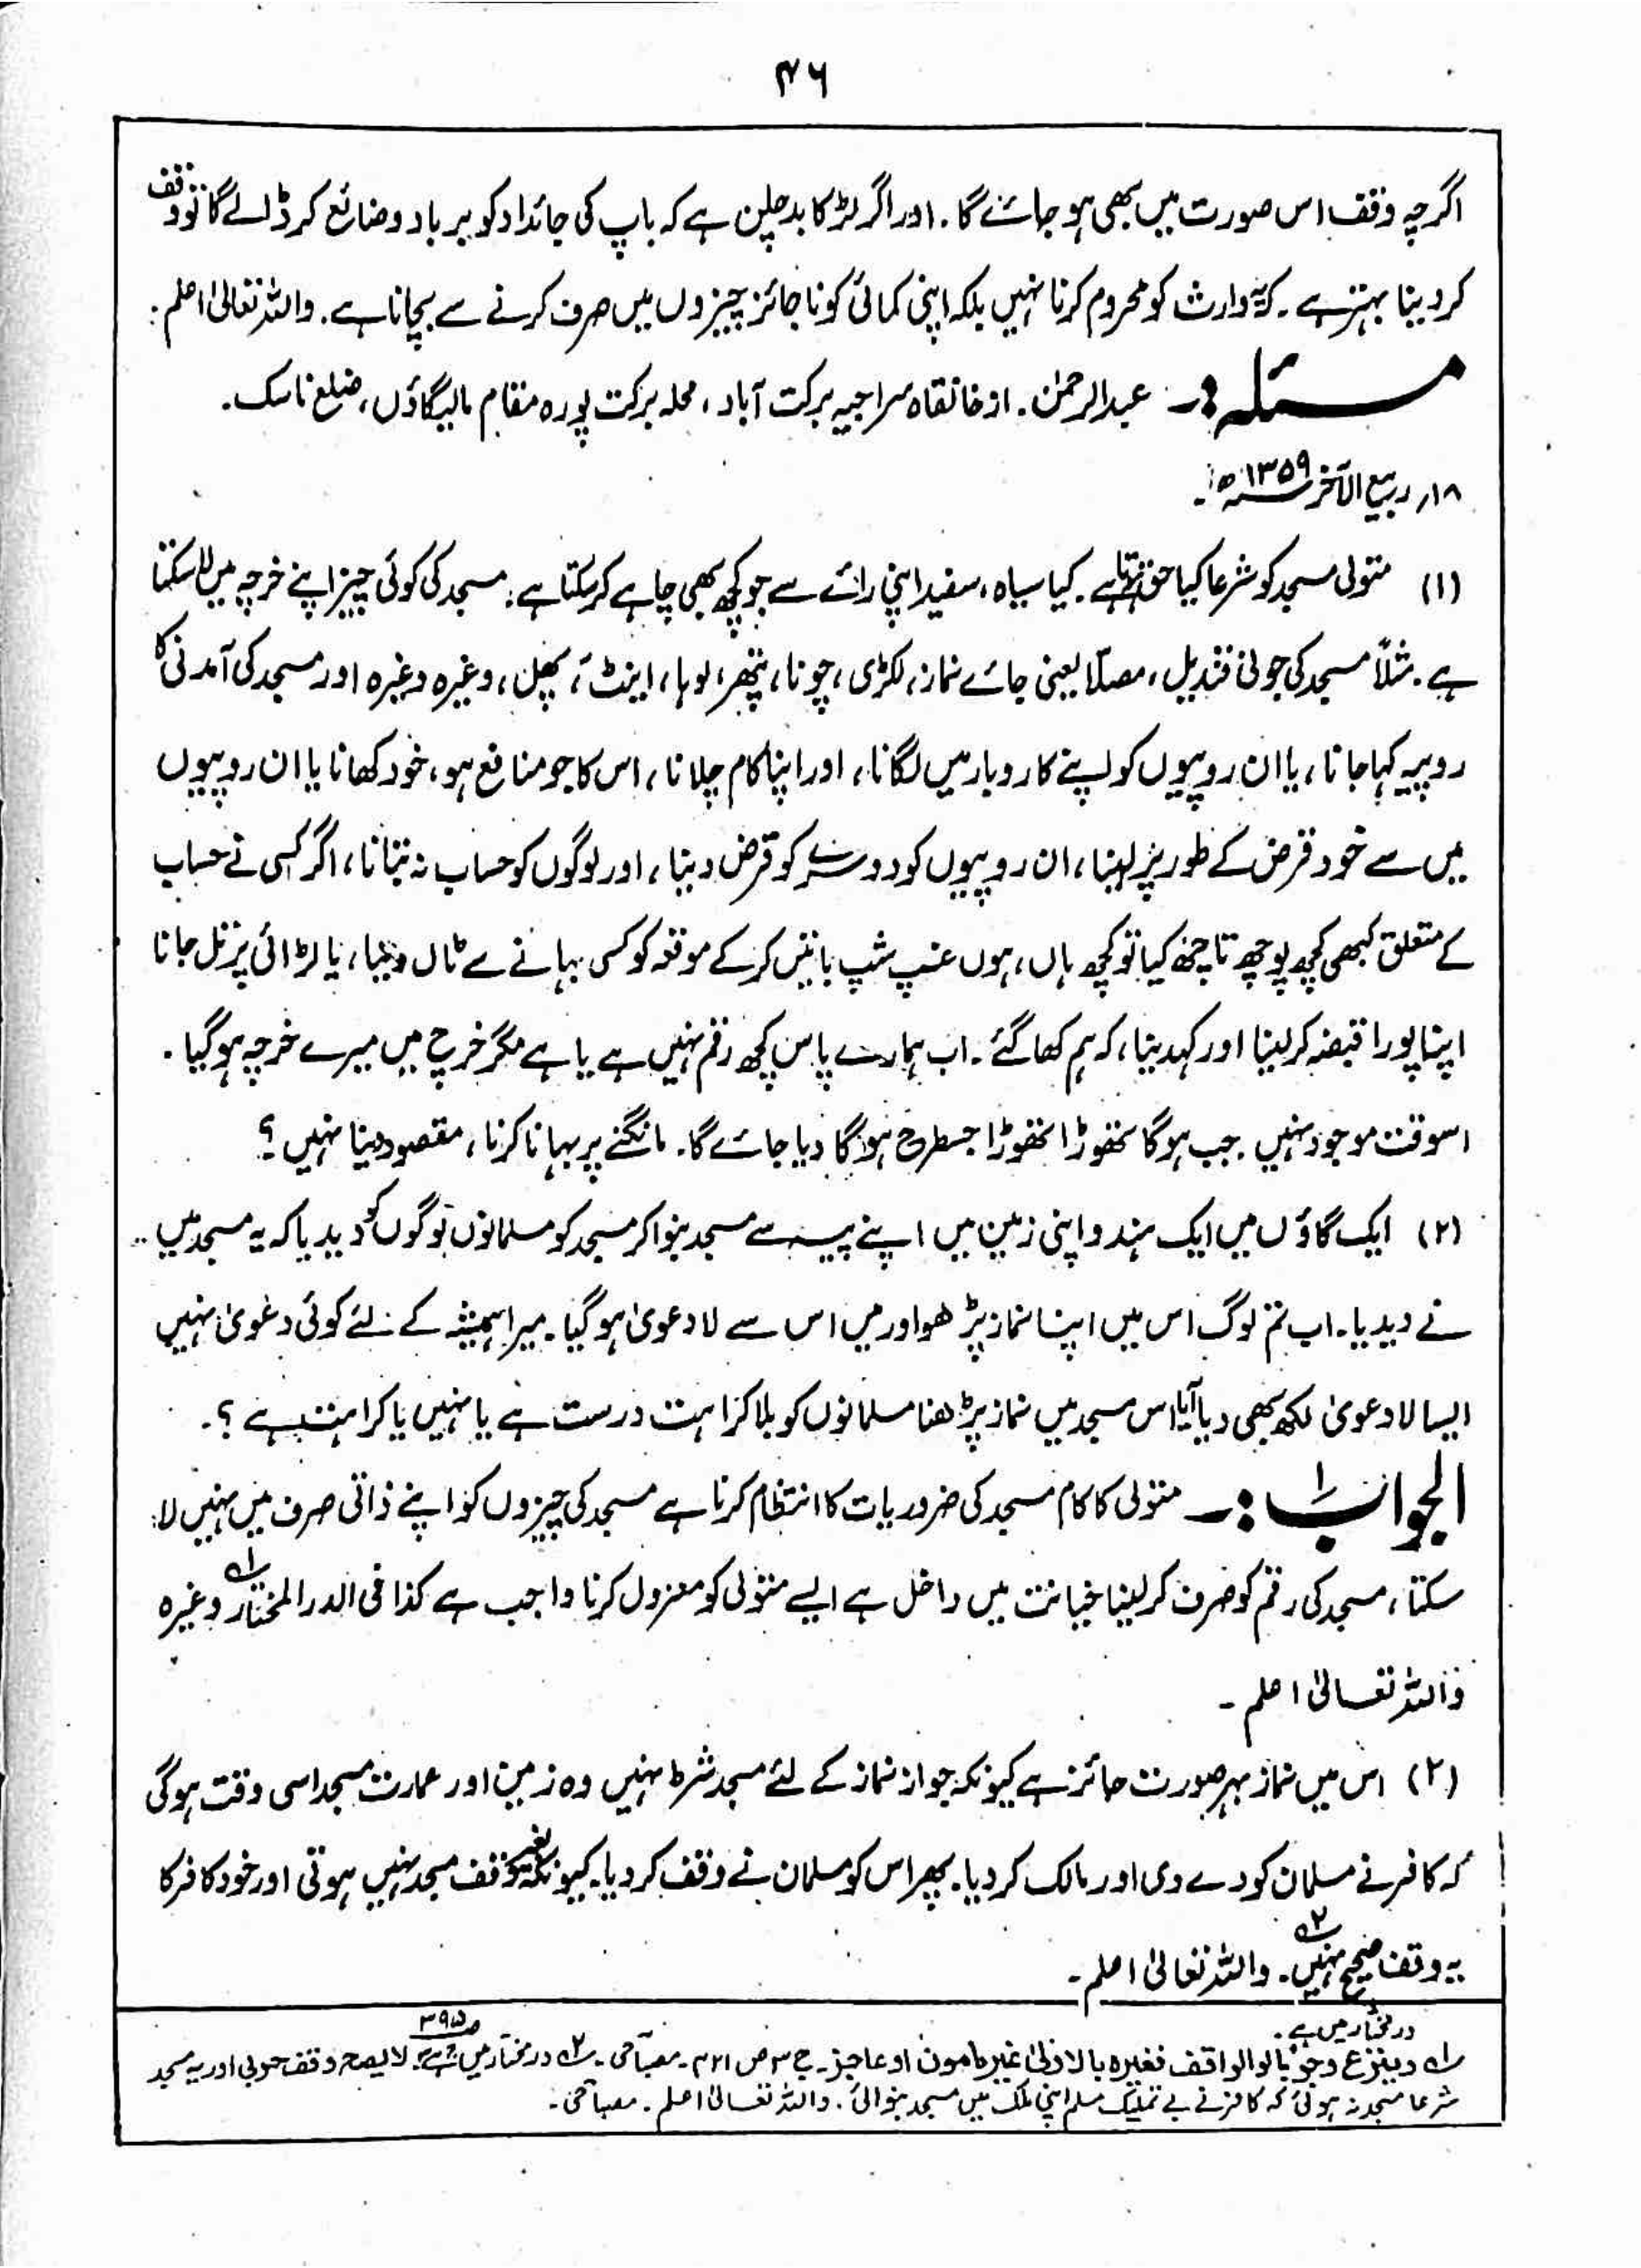 ۴۶
اگرچہ وقف اس صورت میں بھی ہو جائے گا۔ اور اگر لڑکا بدچلن ہے کہ باپ کی جائداد کو برباد و ضائع کر ڈالے گا تو وقف
کر دینا بہتر ہے۔ کہ یہ وارث کو محروم کرنا نہیں بلکہ اپنی کمائی کو ناجائز چیزوں میں صرف کرنے سے بچانا ہے۔ واللہ تعالیٰ اعلم؛
مسئلہ:۔ عبدالرحمٰن۔ از خانقاہ سراجیہ برکت آباد، محلہ برکت پورہ مقام مالیگاؤں، ضلع ناسک۔
۱۸؍ ربیع الآخر ۱۳۵۹ھ۔
(۱) متولی مسجد کو شرعا کیا حق ہوتا ہے۔ کیا سیاہ، سفید اپنی رائے سے جو کچھ بھی چاہے کر سکتا ہے۔ مسجد کی کوئی چیز اپنے خرچہ میں لا سکتا
ہے۔ مثلاً مسجد کی جوئی قندیل، مصلّا یعنی جائے نماز، لکڑی، چونا، پتھر، لوہا، اینٹ، پھل، وغیرہ وغیرہ اور مسجد کی آمدنی کا
روپیہ کہا جانا، یا ان روپیوں کو اپنے کاروبار میں لگانا، اور اپنا کام چلانا، اس کا جو منافع ہو، خود کھانا یا ان روپیوں
میں سے خود قرض کے طور پر لینا، ان روپیوں کو دوسرے کو قرض دینا، اور لوگوں کو حساب نہ بتانا، اگر کسی نے حساب
کے متعلق کبھی کچھ پوچھ تاچھ کیا تو کچھ ہاں، ہوں غپ شپ باتیں کر کے موقعہ کو کسی بہانے سے ٹال دینا، یا لڑائی پر تل جانا
اپنا پورا قبضہ کر لینا اور کہدینا، کہ ہم کھا گئے۔ اب ہمارے پاس کچھ رقم نہیں ہے یا ہے مگر خرچ میں میرے خرچہ ہو گیا۔
اسوقت موجود نہیں۔ جب ہوگا تھوڑا تھوڑا جسطرح ہوگا دیا جائے گا۔ مانگنے پر بہانا کرنا، مقصود دینا نہیں؟
(۲) ایک گاؤں میں ایک ہندو اپنی زمین میں اپنے پیسہ سے مسجد بنوا کر مسجد کو مسلمانوں لوگوں کو دیدیا کہ یہ مسجد میں
نے دیدیا۔ اب تم لوگ اس میں اپنا نماز پڑھو اور میں اس سے لادعویٰ ہو گیا۔ میرا ہمیشہ کے لئے کوئی دعویٰ نہیں
ایسا لادعویٰ لکھ بھی دیا آیا اس مسجد میں نماز پڑھنا مسلمانوں کو بلا کراہت درست ہے یا نہیں یا کراہت ہے؟۔
الجواب ۱:۔ متولی کا کام مسجد کی ضروریات کا انتظام کرنا ہے مسجد کی چیزوں کو اپنے ذاتی صرف میں نہیں لا
سکتا، مسجد کی رقم کو صرف کر لینا خیانت میں داخل ہے ایسے متولی کو معزول کرنا واجب ہے کذا فی الدر المختار ۱ وغیرہ
واللہ تعالیٰ اعلم۔
(۲) اس میں نماز بہرصورت جائز ہے کیونکہ جواز نماز کے لئے مسجد شرط نہیں وہ زمین اور عمارت مسجد اسی وقت ہوگی
کہ کافر نے مسلمان کو دے دی اور مالک کر دیا۔ پھر اس کو مسلمان نے وقف کر دیا۔ کیونکہ بغیر وقف مسجد نہیں ہوتی اور خود کافر کا
یہ وقف صحیح نہیں ۲۔ واللہ تعالیٰ اعلم۔
در مختار میں ہے۔
۱ وینزع وجوبًا لو الواقف فغیرہ بالاولیٰ غیر مامون او عاجز۔ ج ۳ ص ۴۲۱۔ مصباحی۔ ۲ در مختار میں ہے۔ ص ۳۹۵ لا یصح وقف حربی اور یہ مسجد
شرعا مسجد نہ ہوئی کہ کافر نے بے تملیک مسلم اپنی ملک میں مسجد بنوالی۔ واللہ تعالیٰ اعلم۔ مصباحی۔